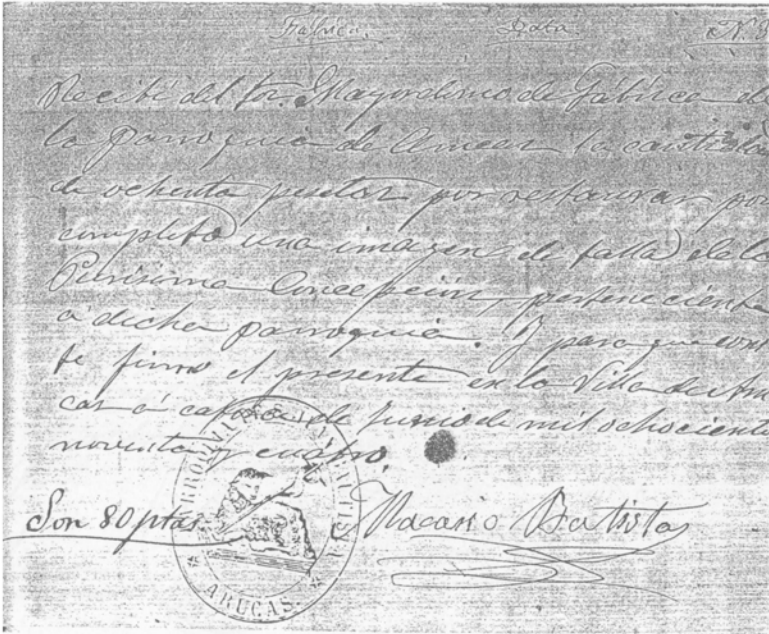 Fábrica. Data. N. 3
Recibí del Sr. Mayordomo de Fábrica de
la parroquia de Arucas la cantidad
de ochenta pesetas por restaurar por
completo una imagen de talla de la
Purísima Concepción, perteneciente
á dicha parroquia. Y para que cons
te firmo el presente en la Villa de Aru
cas á catorce de Junio de mil ochociento
noventa y cuatro.
Son 80 ptas. Macario Batista
ARUCAS